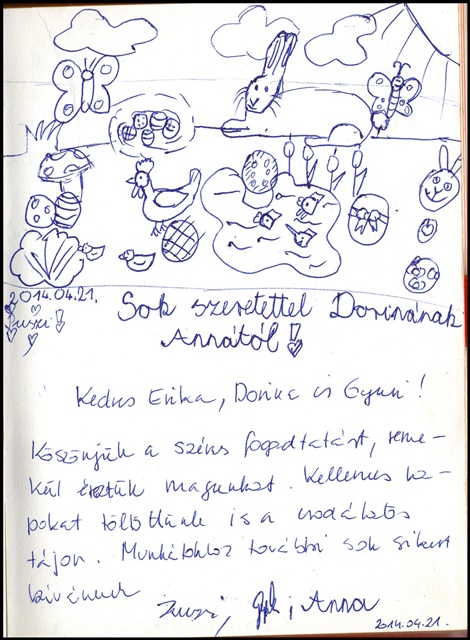 2014.04.21.
Puszi!
Sok szeretettel Dorinának
Annától!
Kedves Erika, Dorina és Gyuri!
Köszönjük a szíves fogadtatást, reme-
kül éreztük magunkat. Kellemes na-
pokat töltöttünk is a csodálatos
tájon. Munkátokhoz további sok sikert
kívánunk
Zsuzsi, Anna
2014.04.21.